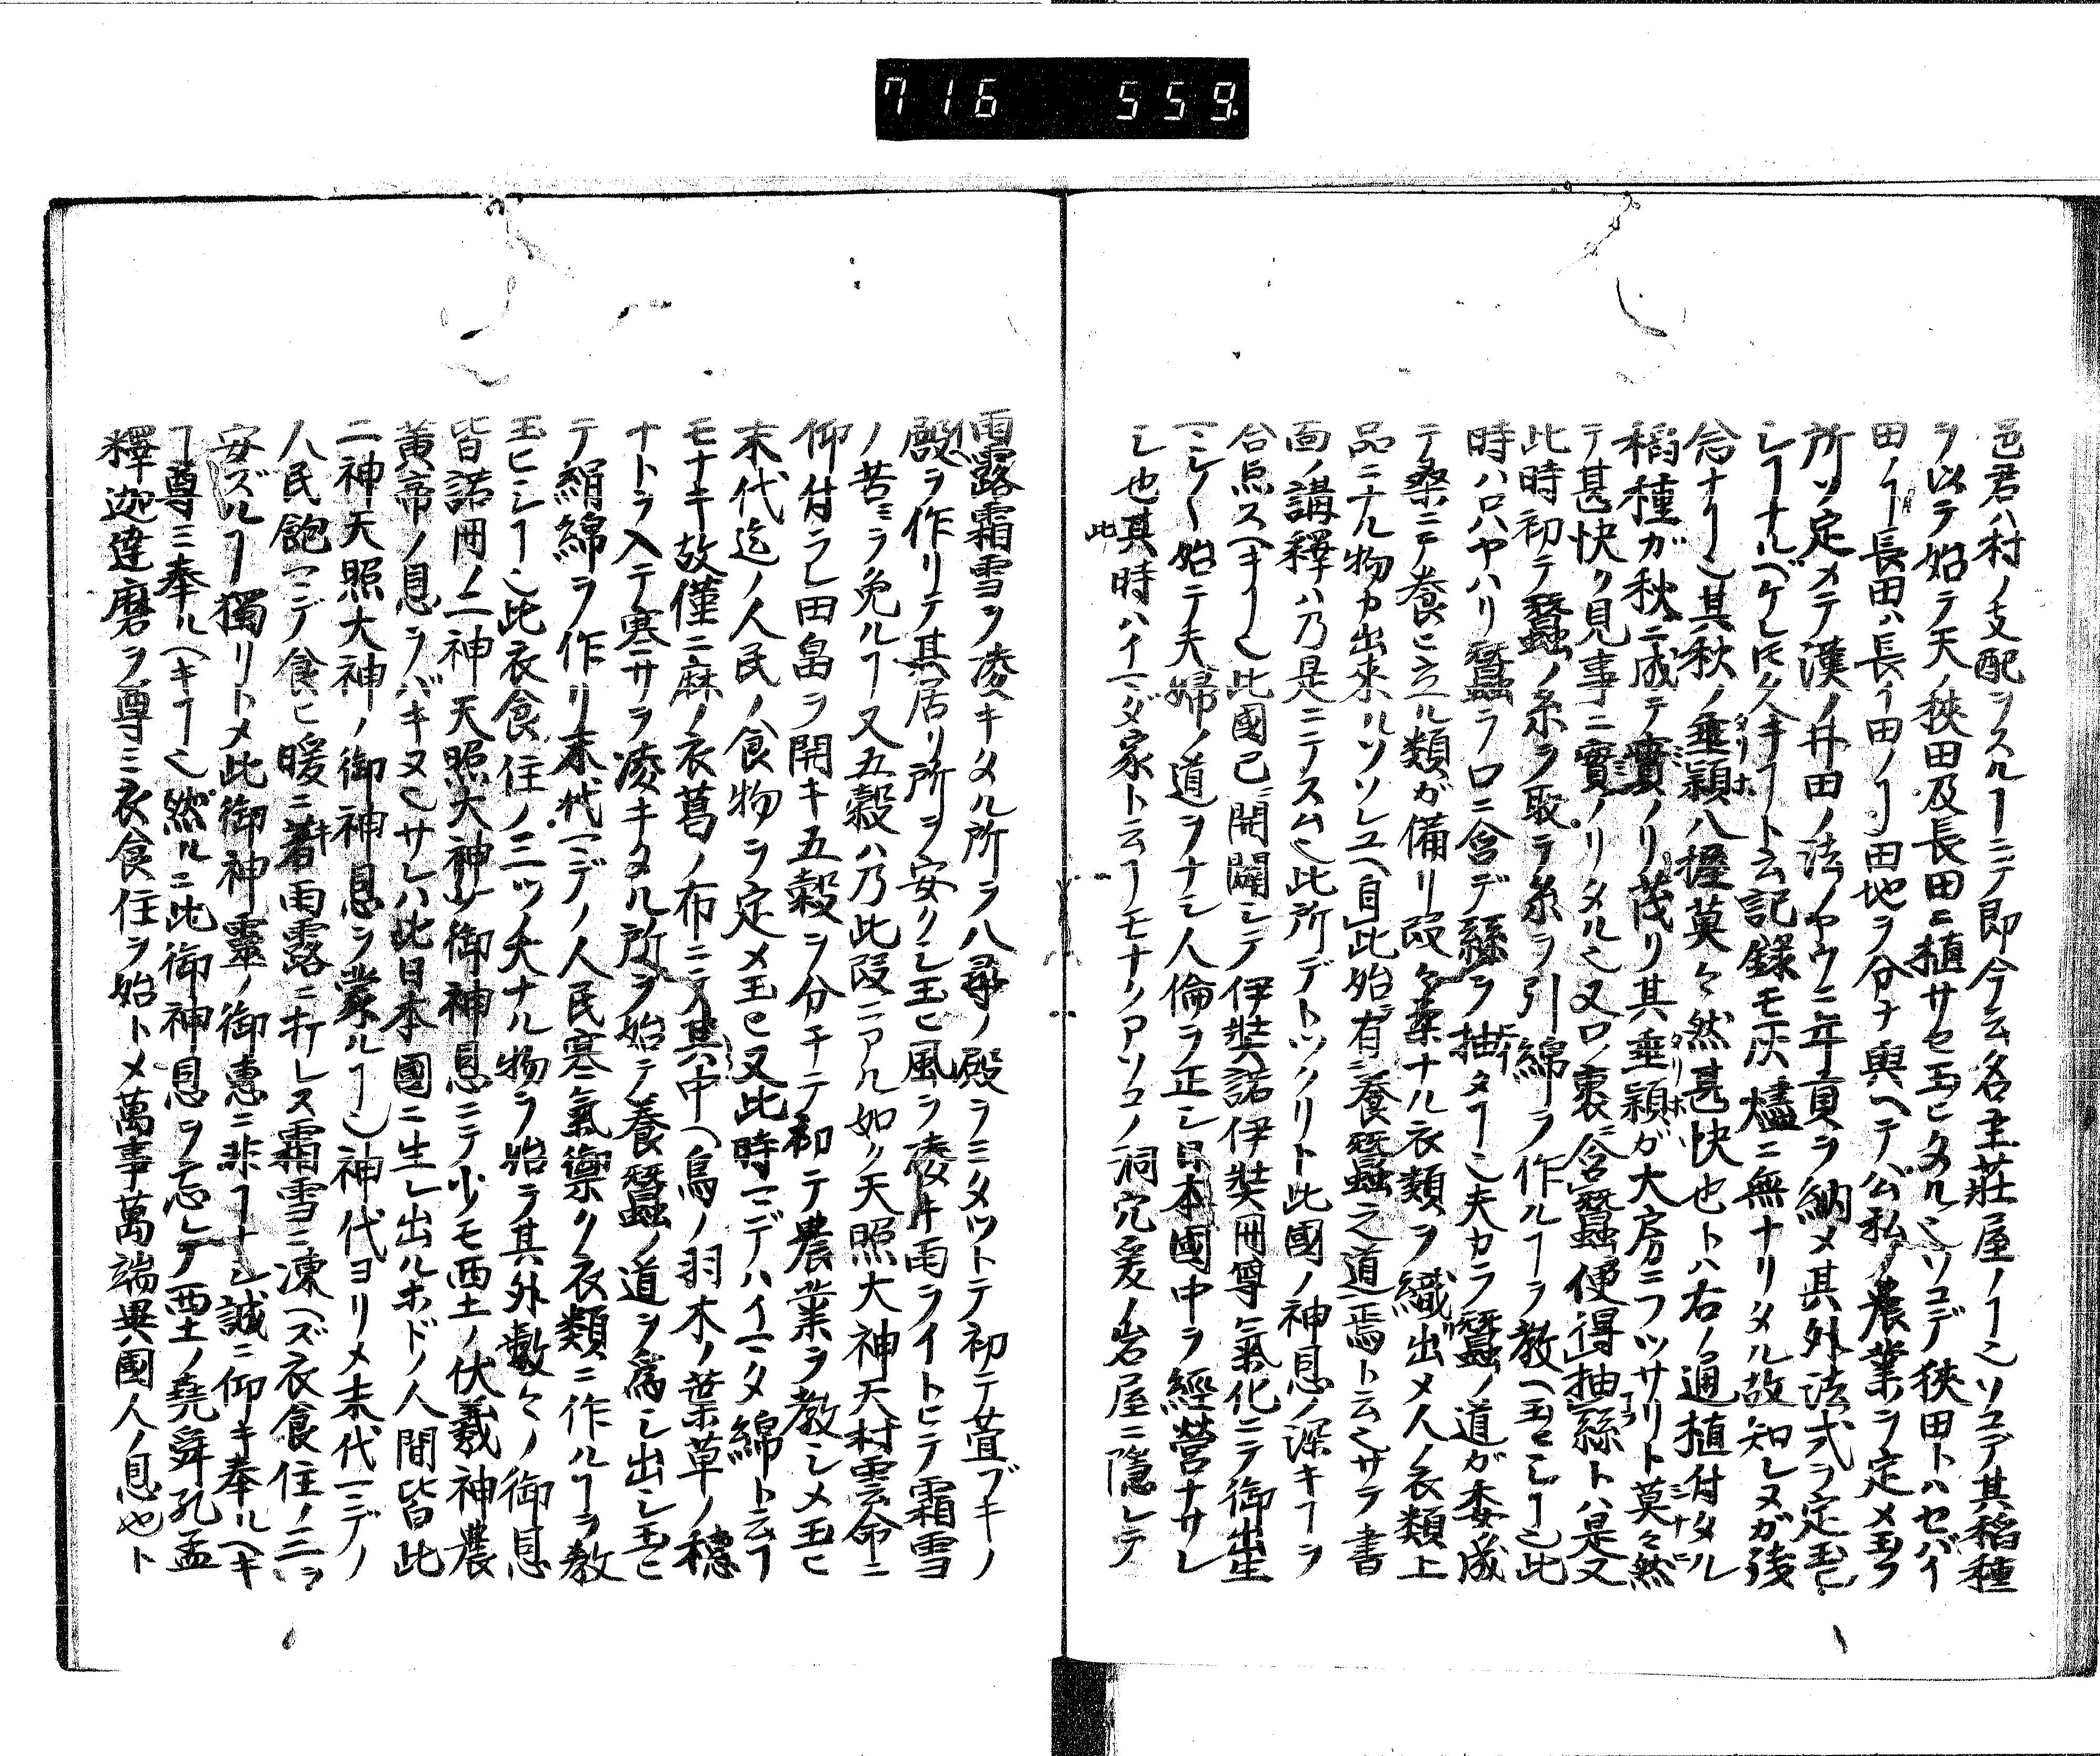 716 559.
邑君ハ村ノ支配ヲスルヿニテ即今云各主莊屋ノヿ也ソコデ其稻種
ヲ以テ始テ天ノ狹田及長田ニ植サセ玉ヒタル也ソコデ狹田トハセバイ
田ノヿ長田ハ長イ田ノヿ田地ヲ分ケ與ヘテ公私ノ農業ヲ定メ玉フ
所ソ定メテ漢ノ井田ノ法ノヤウニ年貢ヲ納メ其外法式ヲ定玉ヒ
シヿナルベケレ𪜈久キヿト云記録モ灰燼ニ無ナリタル故知レヌガ殘
念ナリヿ也其秋ノ垂穎八握莫々然甚快也トハ右ノ通植付タル
稻種ガ秋ニ成テ實ノリ茂リ其垂穎ガ大房ニフツサリト莫々然
テ甚快ク見事ニ實ノリタル也又口ノ裏ニ含蠶便得抽絲トハ是又
此時初テ蠶ノ糸ヲ取テ糸ヲ引綿ヲ作ルヿヲ教ヘ玉ヒシヿ也此
時ハロハヤハリ蠶ヲ口ニ含デ絲ヲ抽タヿ也夫カラ蠶ノ道ガ委ク成
テ桒ニテ養ヒ立ル類ガ備リ段々柔ナル衣類ヲ織出メ人ノ衣類上
品ニナル物カ出來ルソソレユヘ自此始有養蠶之道焉ト云也サテ書
面ノ講釋ハ乃是ニテスム也此所デトツクリト此國ノ神恩ノ深キヿヲ
合点スヘキヿ也此國已開闢シテ伊奘諾伊奘冊尊氣化ニテ御出生
マシ〱始テ夫婦ノ道ヲナシ人倫ヲ正シ日本國中ヲ經營ナサレ
シ也此其時ハイマダ家ト云ヿモナクアソコノ洞穴爰ノ岩屋ニ隱レテ
雨露霜雪ヲ凌キタル所ヲ八尋ノ殿ヲミタツトテ初テ萱ブキノ
殿ヲ作リテ其居リ所ヲ安クシ玉ヒ風ヲ凌キ雨ヲイトヒテ霜雪
ノ苦ミヲ免ルヿ又五穀ハ乃此段ニアル如ク天照大神天村雲命ニ
仰付ラレ田畠ヲ開キ五穀ヲ分チテ初テ農業ヲ教シメ玉ヒ
末代迄ノ人民ノ食物ヲ定メ玉ヒ又此時マデハイマタ綿ト云ヿ
モナキ故僅ニ麻ノ衣葛ノ布ニテ其中ヘ鳥ノ羽木ノ葉草ノ穂
ナトヲ入テ寒サヲ凌キタル所ヲ始テ養蠶ノ道ヲ為シ出シ玉ヒ
テ絹綿ヲ作リ末代マデノ人民寒氣禦ク衣類ニ作ルヿヲ教
玉ヒシヿ也此衣食住ノ三ツ大ナル物ヲ始ラ其外數々ノ御恩
皆諾冊ノ二神天照大神ノ御神恩ニテ少モ西土ノ伏羲神農
黄帝ノ恩ヲバキヌ也サレハ此日本國ニ生レ出ルホドノ人間皆此
二神天照大神ノ御神恩ヲ蒙ルヿ也神代ヨリメ末代マデノ
人民飽マデ食ヒ暖ニ著雨露ニ打レス霜雪ニ凍ヘズ衣食住ノ三ヲ
安ズルヿ獨リトメ此御神靈ノ御惠ニ非ヿナシ誠ニ仰キ奉ルヘキ
ヿ尊ミ奉ルヘキヿ也然ルニ此御神恩ヲ忘レテ西土ノ堯舜孔孟
釋迦達磨ヲ尊ミ衣食住ヲ始トメ萬事萬端異國人ノ恩也ト